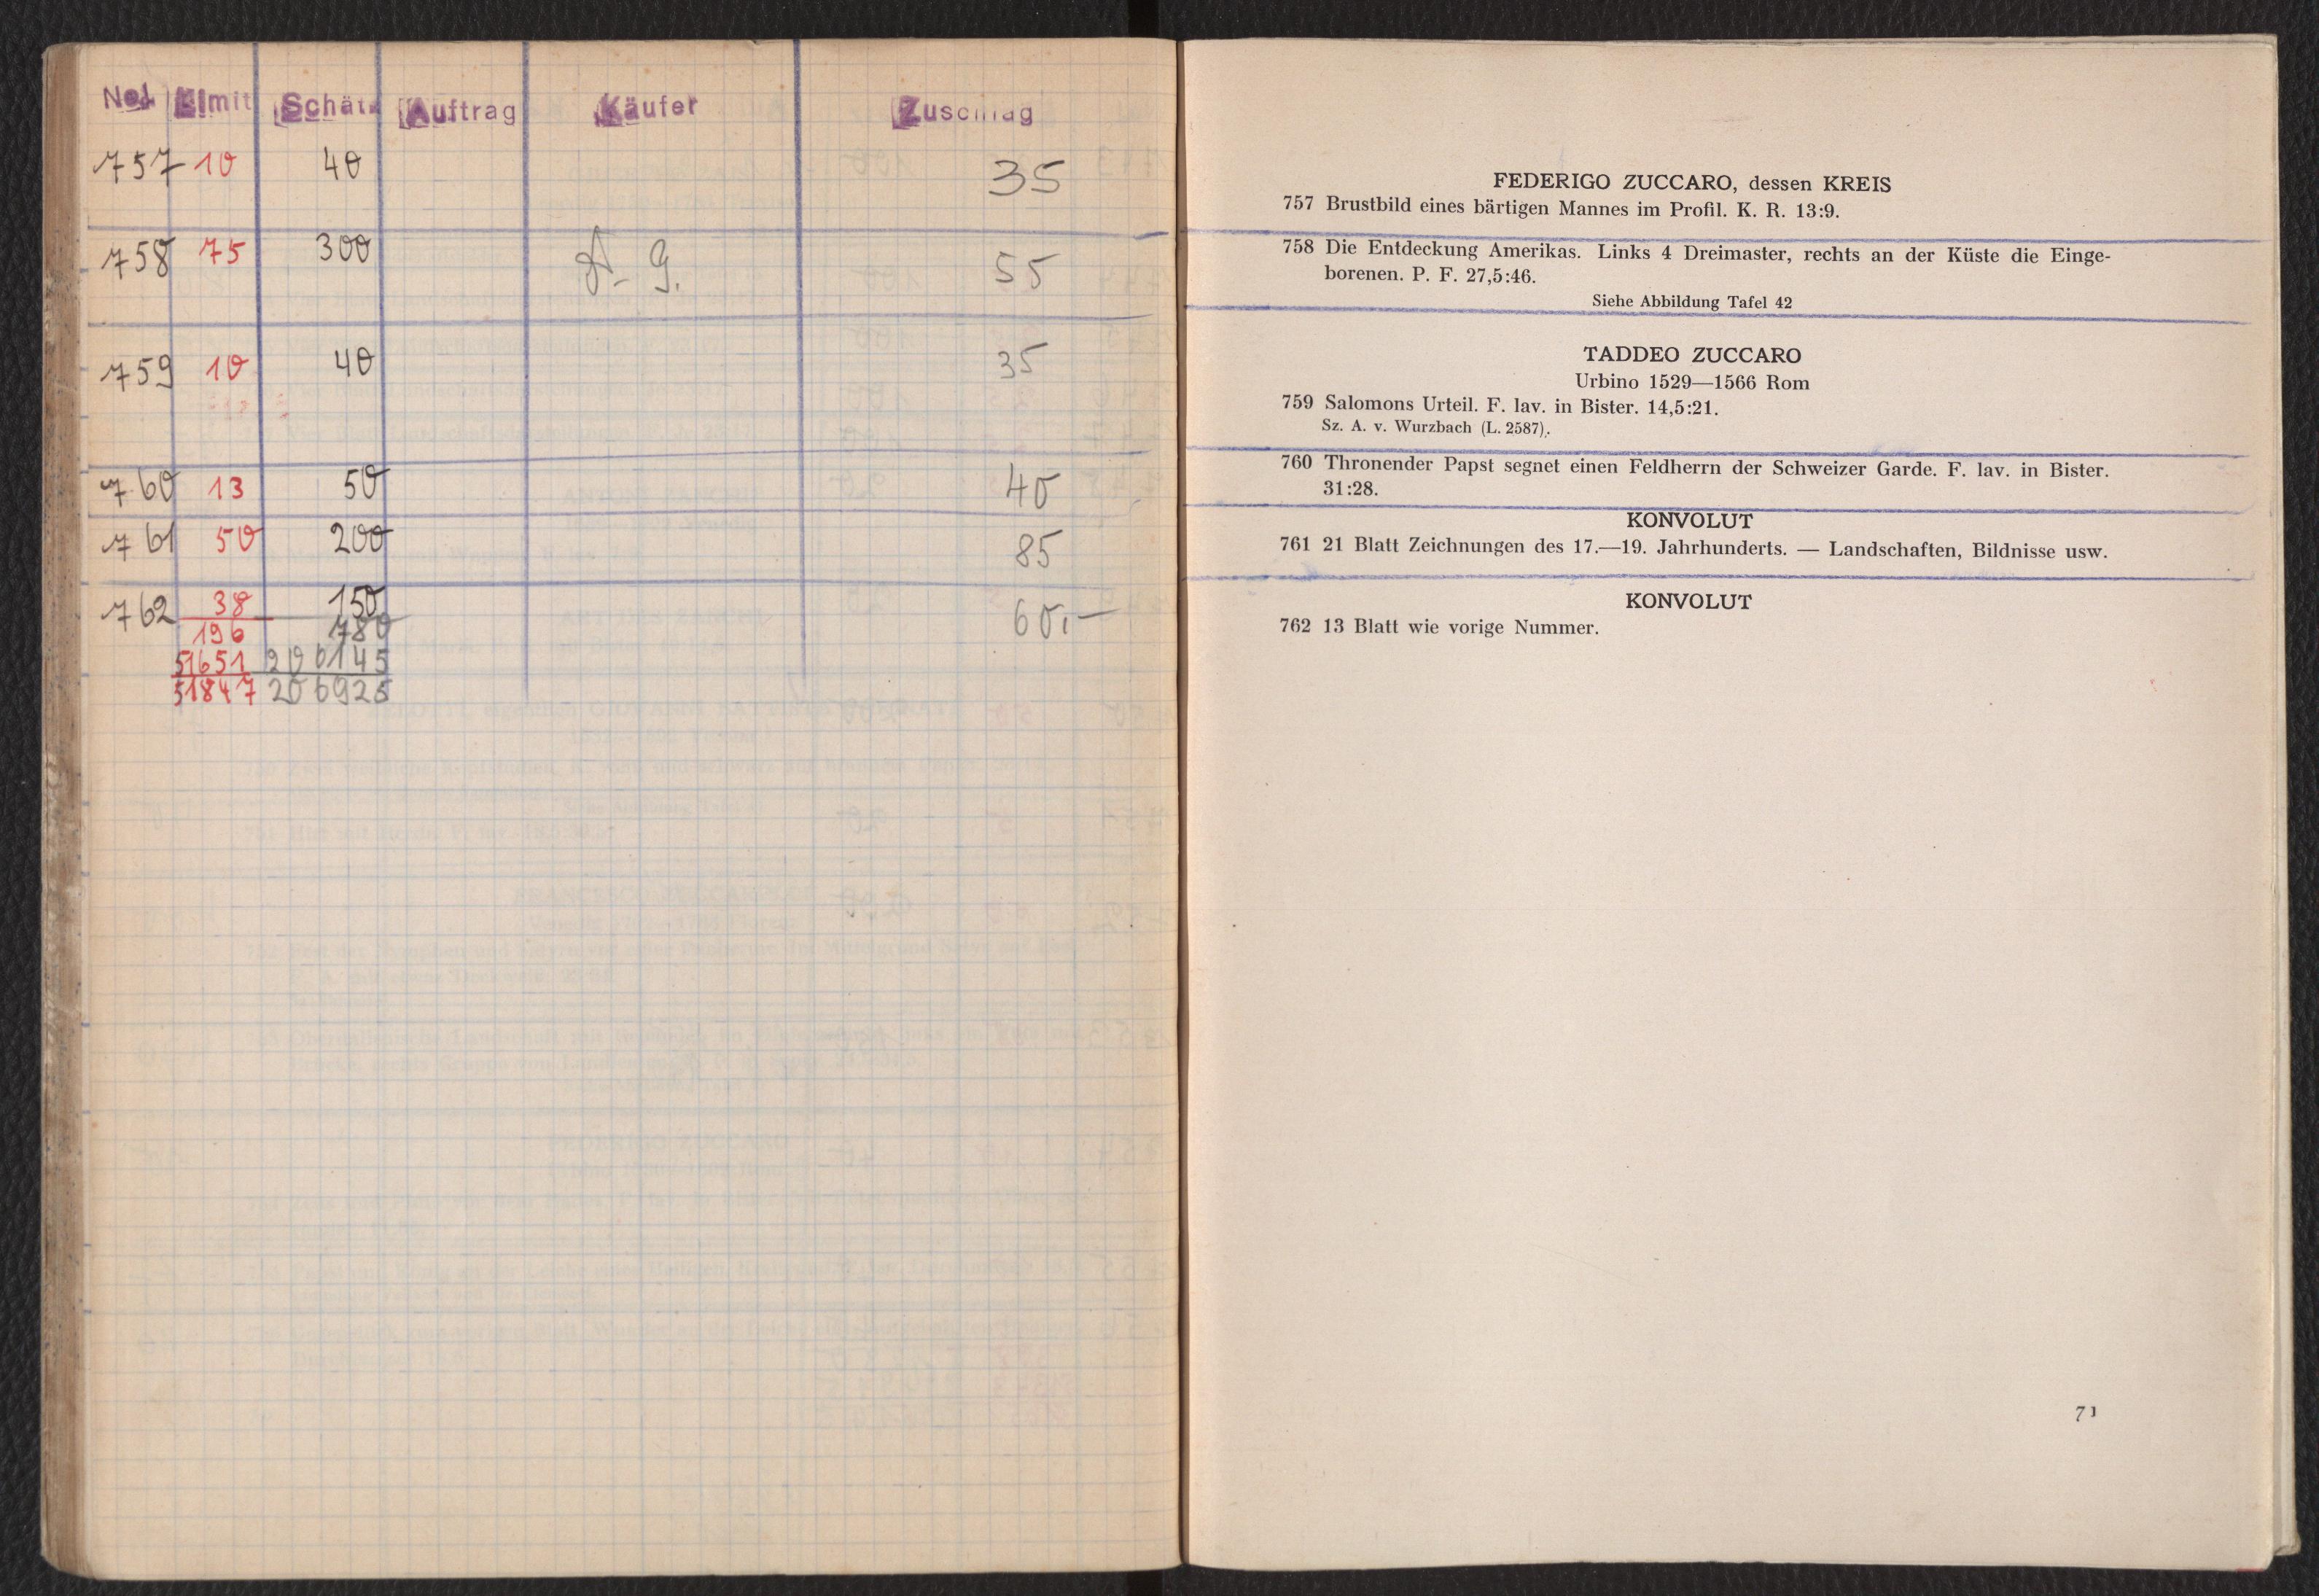 No Limit Schätz Auftrag Käufer Zuschlag
757 10 40 35
758 75 300 A. G. 55
759 10 40 35
760 13 50 40
761 50 200 85
762 38 150 60.-
196 780
51651 206145
51847 206925
FEDERIGO ZUCCARO, dessen KREIS
757 Brustbild eines bärtigen Mannes im Profil. K. R. 13:9.
758 Die Entdeckung Amerikas. Links 4 Dreimaster, rechts an der Küste die Einge-
borenen. P. F. 27,5:46.
Siehe Abbildung Tafel 42
TADDEO ZUCCARO
Urbino 1529—1566 Rom
759 Salomons Urteil. F. lav. in Bister. 14,5:21.
Sz. A. v. Wurzbach (L. 2587).
760 Thronender Papst segnet einen Feldherrn der Schweizer Garde. F. lav. in Bister.
31:28.
KONVOLUT
761 21 Blatt Zeichnungen des 17.—19. Jahrhunderts. — Landschaften, Bildnisse usw.
KONVOLUT
762 13 Blatt wie vorige Nummer.
71